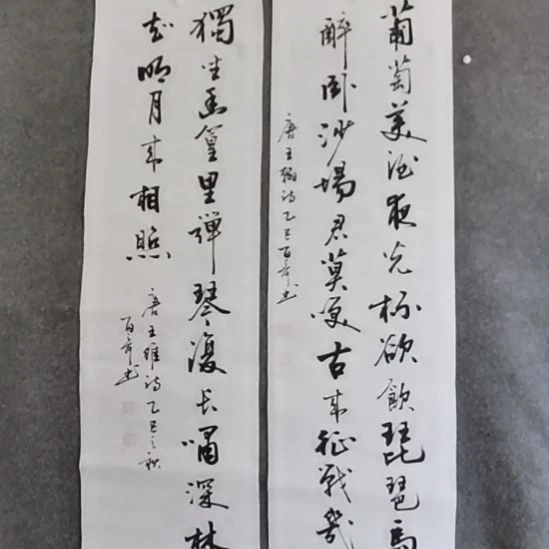 葡萄美酒夜光杯欲飲琵琶馬
醉卧沙場君莫笑古來征戰幾
唐王翰詩乙巳百年書
獨坐幽篁里彈琴復長嘯深林
知明月來相照
唐王維詩乙巳之秋
百年書